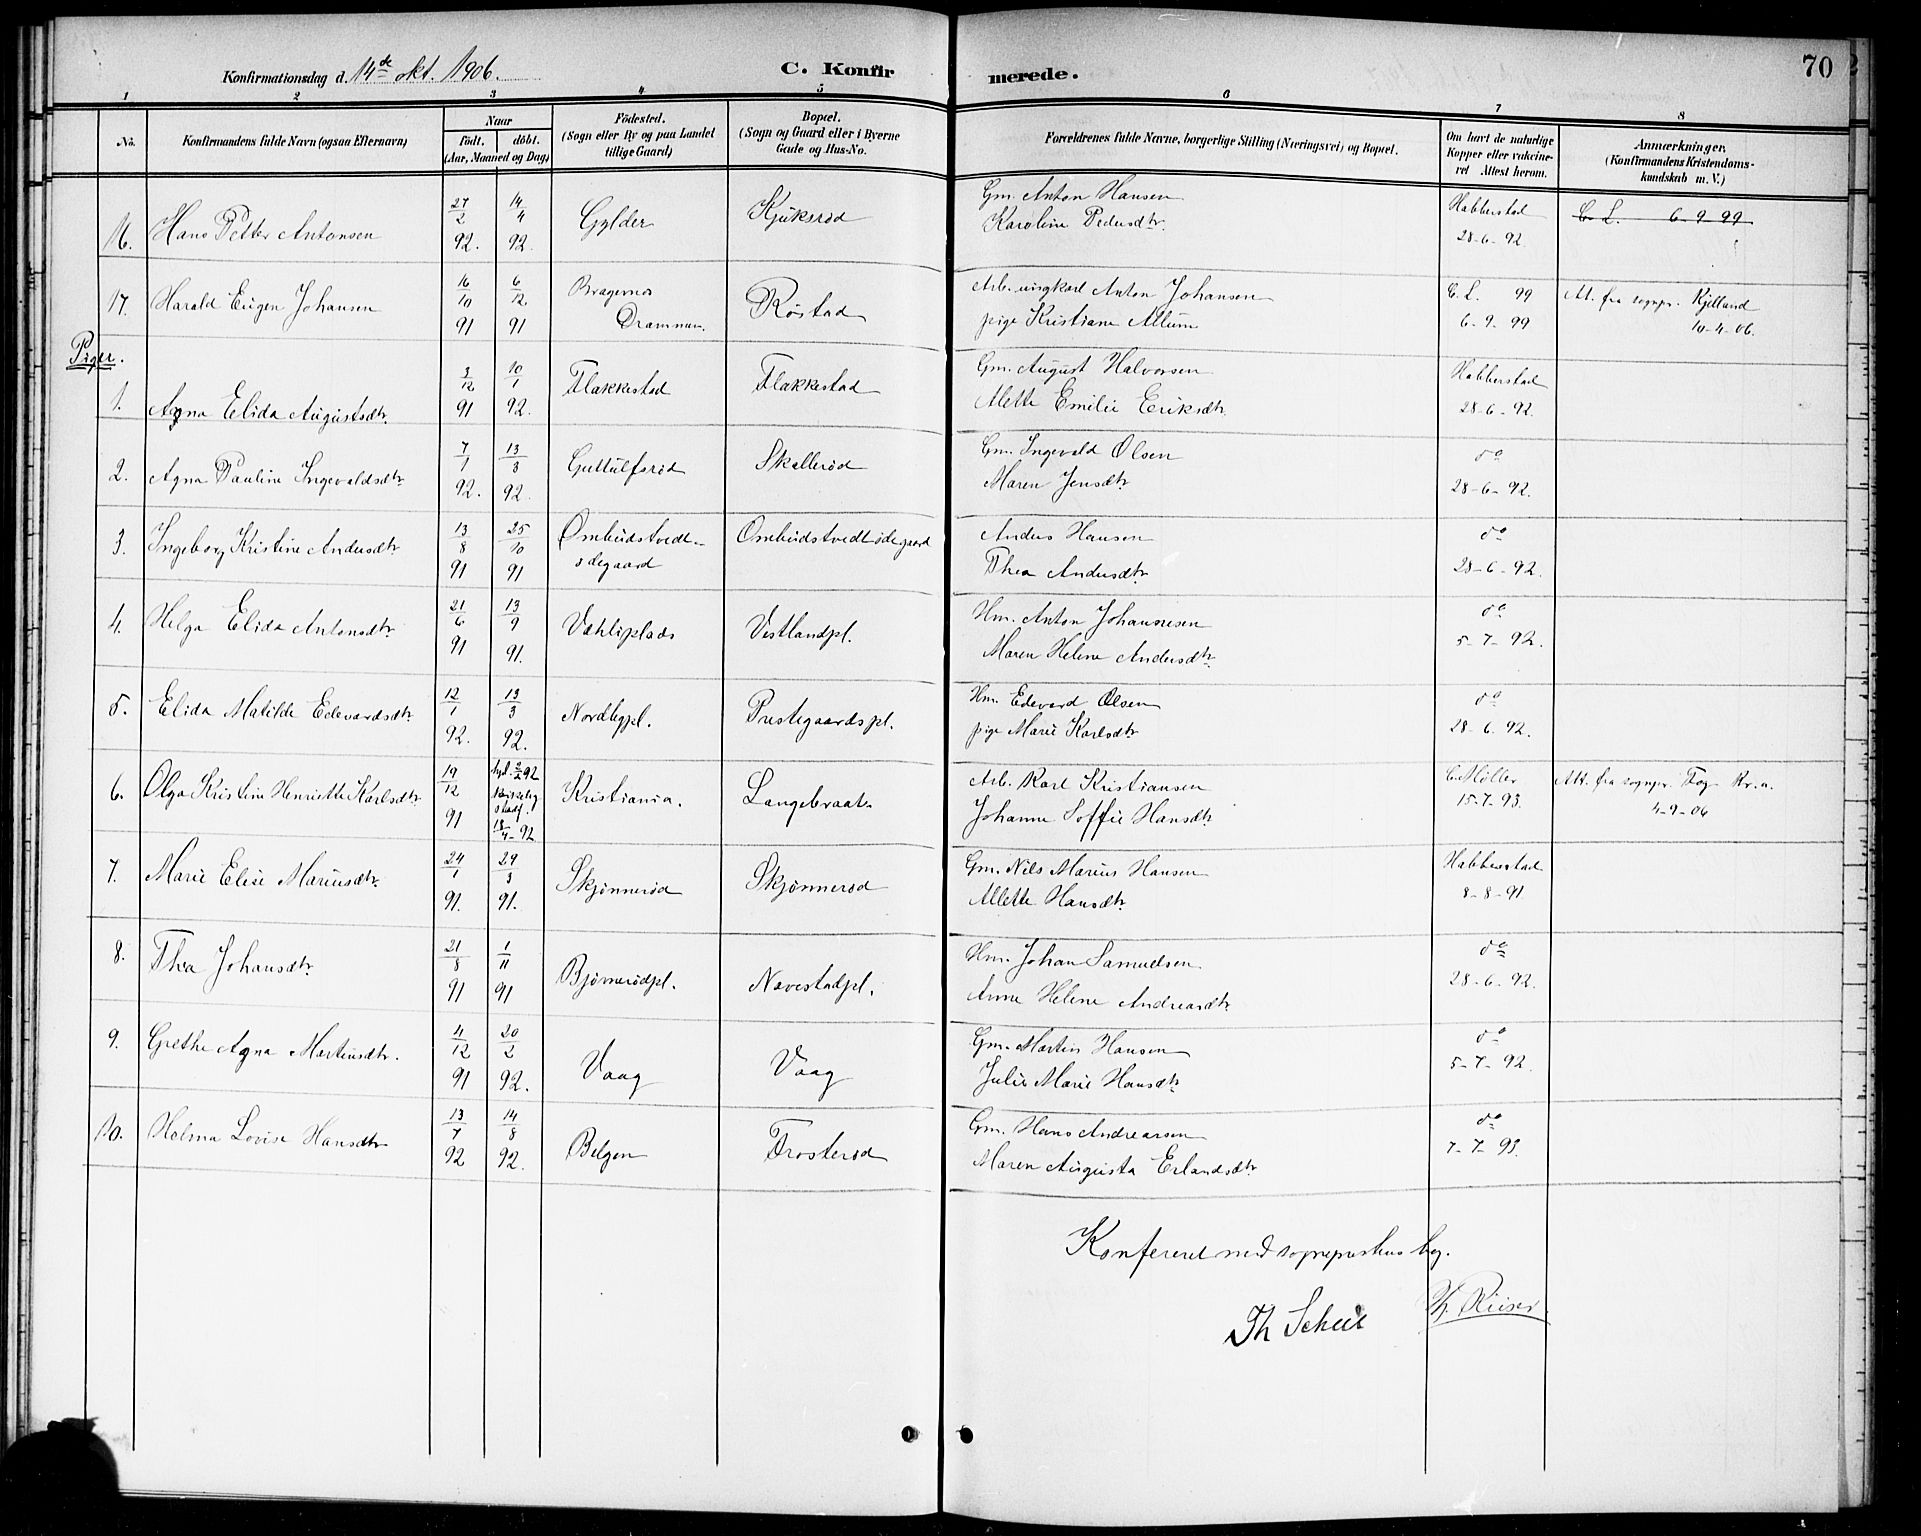 Konfirmationsdag d. 14de okt. 1906.
C. Konfirmerede.
70
1 2 3 4 5 6 7 8
No.
Konfirmandens fulde Navn (ogsaa Efternavn)
Naar
født. døbt.
(Aar, Maaned og Dag)
Fødested.
(Sogn eller By og paa Landet
tillige Gaard)
Bopæl.
(Sogn og Gaard eller i Byerne
Gade og Hus-No.
Forældrenes fulde Navne, borgerlige Stilling (Næringsvei) og Bopæl.
Om havt de naturlige
Kopper eller vakcine-
ret Attest herom.
Anmærkninger,
(Konfirmandens Kristendoms-
kundskab m. V.)
16. Hans Petter Antonsen 27/2 92. 14/4 92. Gylder Kjuksrød
Gm. Anton Hansen
Karoline Pedersdtr.
Habberstad
28-6-92.
C. L. 6-9-99
17. Harald Eugen Johansen 16/10 91 6/12 91 Bragernes
Drammen. Røstad
Arb. ungkarl Anton Johansen
pige Kristiane Allum
C. L. 99
6-9-99
Att. fra sognpr. Kjelland
10-4-06.
Piger.
1. Agna Elida Augustsdtr. 3/12 91 10/1 92. Flakkestad Flakkestad
Gm. August Halvorsen
Alette Emilie Eriksdtr.
Habberstad
28-6-92.
2. Agna Pauline Ingevaldsdtr. 7/1 92. 13/3 92. Guttulfsrød Skallerød
Gm. Ingevald Olsen
Maren Jensdtr.
do
28-6-92.
3. Ingeborg Kristine Andersdtr 13/8 91 25/10 91 Ombudstvedt-
ødegaard Ombudstvedtødegaard
Anders Hansen
Thea Andersdtr.
do
28-6-92.
4. Helga Elida Antonsdtr. 21/6 91 13/9 91. Væhliplads Vestlandpl.
Hm. Anton Johannesen
Maren Helene Andersdtr.
do
5-7-92.
5. Elida Matilde Edevardsdtr 12/1 92. 13/3 92. Nordbypl. Prestegaardspl.
Hm. Edevard Olsen
pige Marie Karlsdtr
do
28-6-92.
6. Olga Kristine Henriette Karlsdtr 19/12 91 2/2 92
13/4-92 Kristiania. Langebraat
Arb. Karl Kristiansen
Johanne Soffie Hansdtr.
C. Møller
15-7-93.
Att. fra sognpr. Fog Kr.a.
4-9-06
7. Marie Elise Mariusdtr. 24/1 91. 29/3 91. Skjønnerød Skjønnerød
Gm. Nils Marius Hansen
Allette Hansdtr.
Habberstad
8-8-91
8. Thea Johansdtr. 21/8 91 1/11 91 Bjørnerødpl. Navestadpl.
Hm. Johan Samuelsen
Anne Helene Andreasdtr.
do
28-6-92.
9. Grethe Agna Martinsdtr. 4/12 91 20/2 92. Vaag Vaag
Gm. Martin Hansen
Julie Marie Hansdtr.
do
5-7-92
10. Helma Lovise Hansdtr 13/7 92 14/8 92. Belgen Frosterød
Gm. Hans Andreassen
Maren Augusta Erlandsdtr.
do
7-7-93.
Konfereret med sogneprestens bog.
Th Scheie